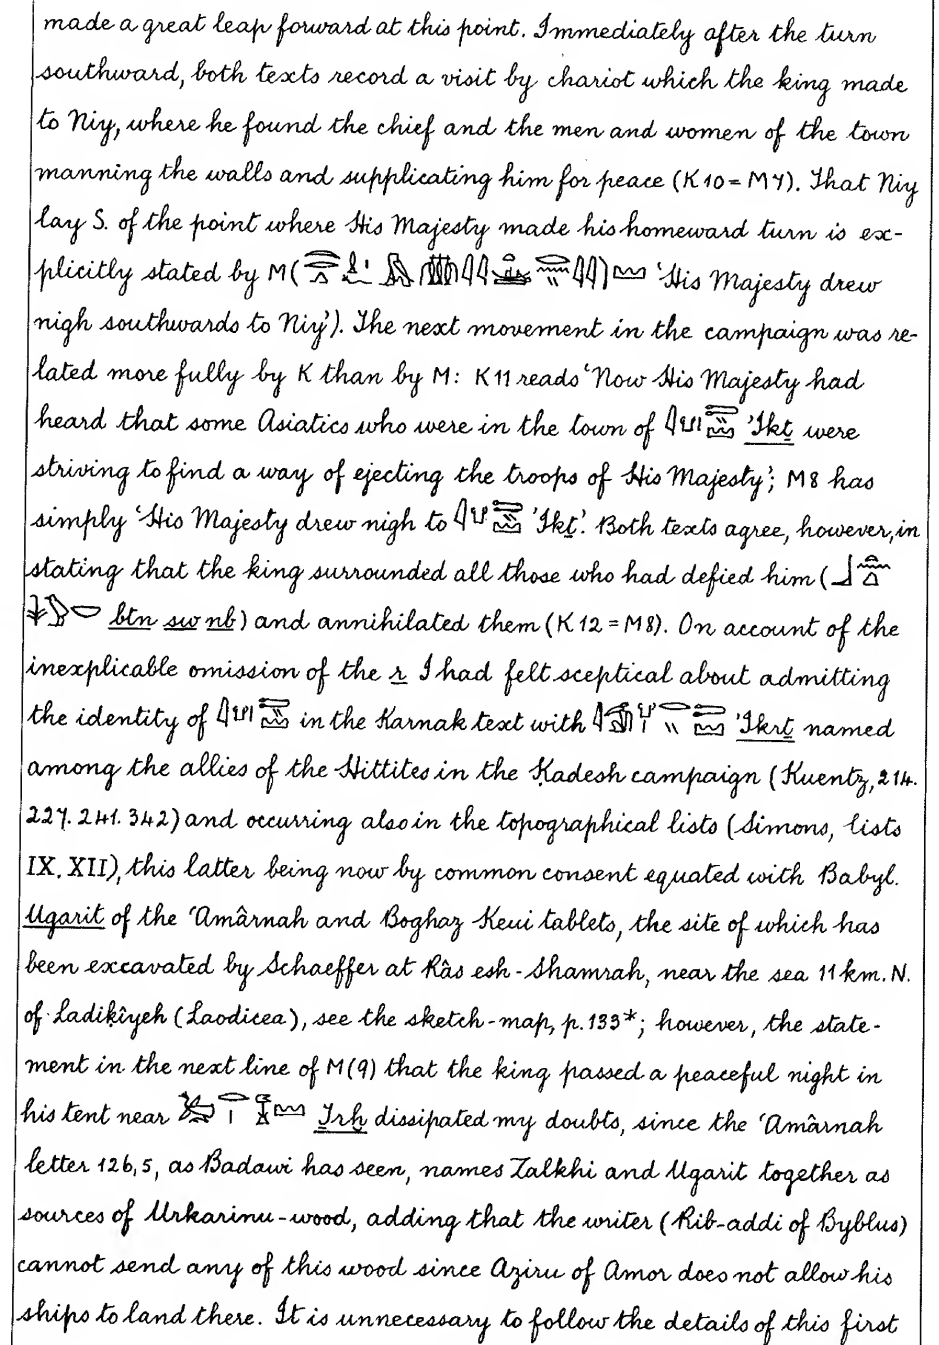 made a great leap forward at this point. Immediately after the turn
southward, both texts record a visit by chariot which the king made
to Niy, where he found the chief and the men and women of the town
manning the walls and supplicating him for peace (K 10 = M 7). That Niy
lay S. of the point where His Majesty made his homeward turn is ex-
plicitly stated by M ( ) 'His Majesty drew
nigh southwards to Niy'). The next movement in the campaign was re-
lated more fully by K than by M: K 11 reads 'Now His Majesty had
heard that some Asiatics who were in the town of 'Ikṯ were
striving to find a way of ejecting the troops of His Majesty'; M 8 has
simply 'His Majesty drew nigh to 'Ikṯ'. Both texts agree, however, in
stating that the king surrounded all those who had defied him (
btn sw nb) and annihilated them (K 12 = M 8). On account of the
inexplicable omission of the r I had felt sceptical about admitting
the identity of in the Karnak text with 'Ikrṯ named
among the allies of the Hittites in the Ḳadesh campaign (Kuentz, 214.
227. 241. 342) and occurring also in the topographical lists (Simons, lists
IX. XII), this latter being now by common consent equated with Babyl.
Ugarit of the 'Amârnah and Boghaz Keui tablets, the site of which has
been excavated by Schaeffer at Râs esh-Shamrah, near the sea 11 km. N.
of Ladiḳîyeh (Laodicea), see the sketch-map, p. 133*; however, the state-
ment in the next line of M (9) that the king passed a peaceful night in
his tent near Ṯrḫ dissipated my doubts, since the 'Amârnah
letter 126, 5, as Badawi has seen, names Zalkhi and Ugarit together as
sources of Urkarinu-wood, adding that the writer (Rib-addi of Byblus)
cannot send any of this wood since Aziru of Amor does not allow his
ships to land there. It is unnecessary to follow the details of this first